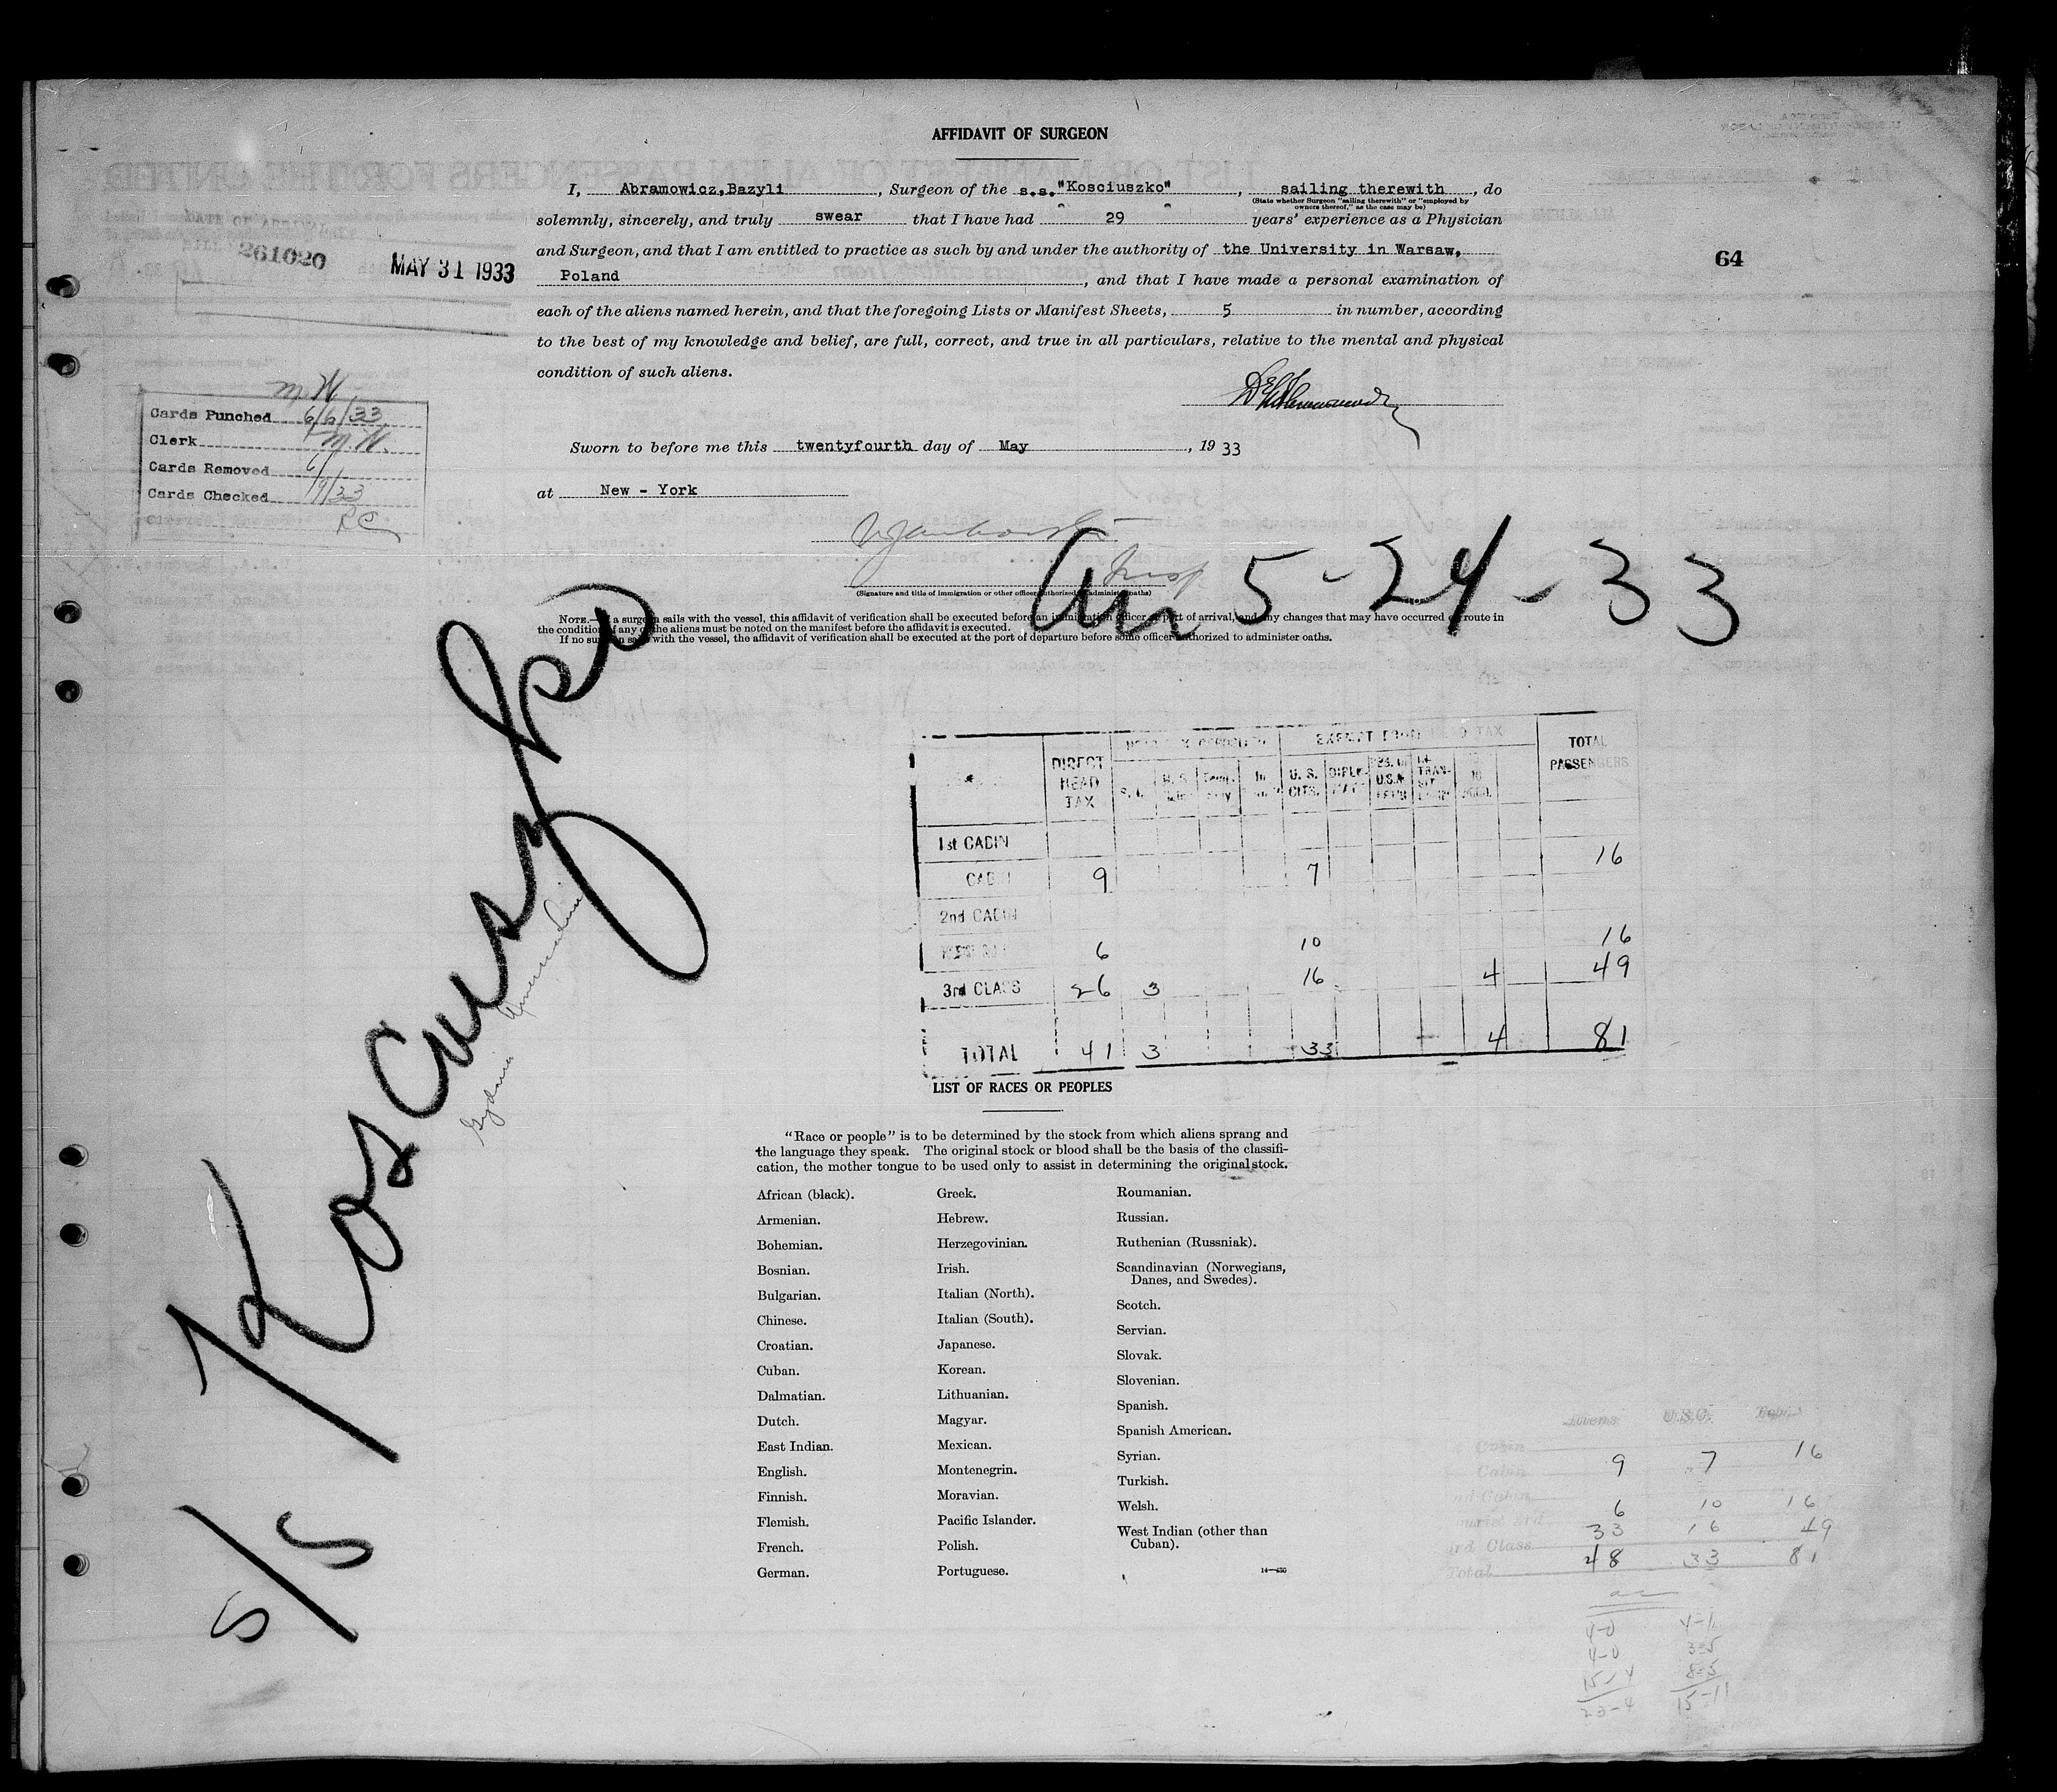 AFFIDAVIT OF SURGEON
I, Abramowicz,Bazyli, Surgeon of the s.s."Kosciuszko", sailing therewith, do
(State whether Surgeon "sailing therewith" or "employed by
owners thereof," as the case may be)
solemnly, sincerely, and truly swear that I have had 29 years' experience as a Physician
and Surgeon, and that I am entitled to practice as such by and under the authority of the University in Warsaw,
Poland, and that I have made a personal examination of
each of the aliens named herein, and that the foregoing Lists or Manifest Sheets, 5 in number, according
to the best of my knowledge and belief, are full, correct, and true in all particulars, relative to the mental and physical
condition of such aliens.
261020
MAY 31 1933
64
M.W.
Cards Punched 6/6/33
Clerk M.W.
Cards Removed 6/
Cards Checked /9/33
RC
Sworn to before me this twentyfourth day of May, 1933
at New - York
Insp
(Signature and title of immigration or other officer authorized to administer oaths)
Arr 5-24-33
NOTE.—If a surgeon sails with the vessel, this affidavit of verification shall be executed before an immigration officer at port of arrival, and any changes that may have occurred en route in
the condition of any of the aliens must be noted on the manifest before the affidavit is executed.
If no surgeon sails with the vessel, the affidavit of verification shall be executed at the port of departure before some officer authorized to administer oaths.
S/S Kosciuszko
Gydnia
DIRECT HEAD TAX
EXEMPT FROM HEAD TAX
TOTAL PASSENGERS
U.S. CITS.
1st CABIN
CABIN 9 7 16
2nd CABIN
6 10 16
3rd CLASS 26 3 16 4 49
TOTAL 41 3 33 4 81
LIST OF RACES OR PEOPLES
"Race or people" is to be determined by the stock from which aliens sprang and
the language they speak. The original stock or blood shall be the basis of the classifi-
cation, the mother tongue to be used only to assist in determining the original stock.
African (black).
Armenian.
Bohemian.
Bosnian.
Bulgarian.
Chinese.
Croatian.
Cuban.
Dalmatian.
Dutch.
East Indian.
English.
Finnish.
Flemish.
French.
German.
Greek.
Hebrew.
Herzegovinian.
Irish.
Italian (North).
Italian (South).
Japanese.
Korean.
Lithuanian.
Magyar.
Mexican.
Montenegrin.
Moravian.
Pacific Islander.
Polish.
Portuguese.
Roumanian.
Russian.
Ruthenian (Russniak).
Scandinavian (Norwegians,
Danes, and Swedes).
Scotch.
Servian.
Slovak.
Slovenian.
Spanish.
Spanish American.
Syrian.
Turkish.
Welsh.
West Indian (other than
Cuban).
Aliens U.S.C. Total
Cabin
Cabin 9 7 16
Cabin
6 10 16
33 16 49
3rd Class
Total 48 33 81
4-0 4-1
4-0 3-5
15-4 8-5
23-4 15-11